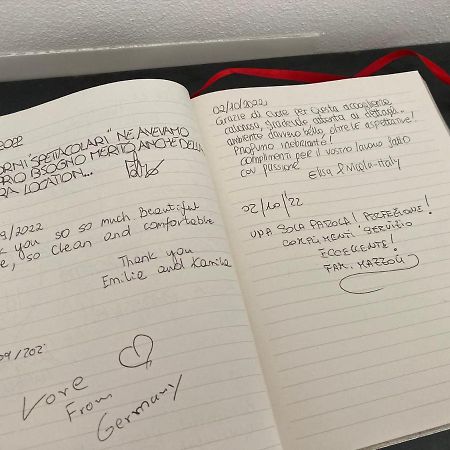 2022
ORNI "SPETTACOLARI" NE AVEVAMO
RIO BISOGNO MERITO ANCHE DELLA
RA LOCATION...
9/2022
k you so so much. Beautiful
e, so clean and comfortable
Thank you
Emilie and Kamilia
09/202
Vore
From
Germany
02/10/2022
Grazie di cuore per questa accoglienza
calorosa, grande attenta ai dettagli..
ambiente davvero bello, oltre le aspettative!
Profumo inebriante!
Complimenti per il vostro lavoro fatto
con passione
Elisa & Nicola - Italy
02/10/22
UNA SOLA PAROLA! PERFEZIONE!
COMPLIMENTI SERVIZIO
ECCELLENTE!
FAM. MAZZOLI